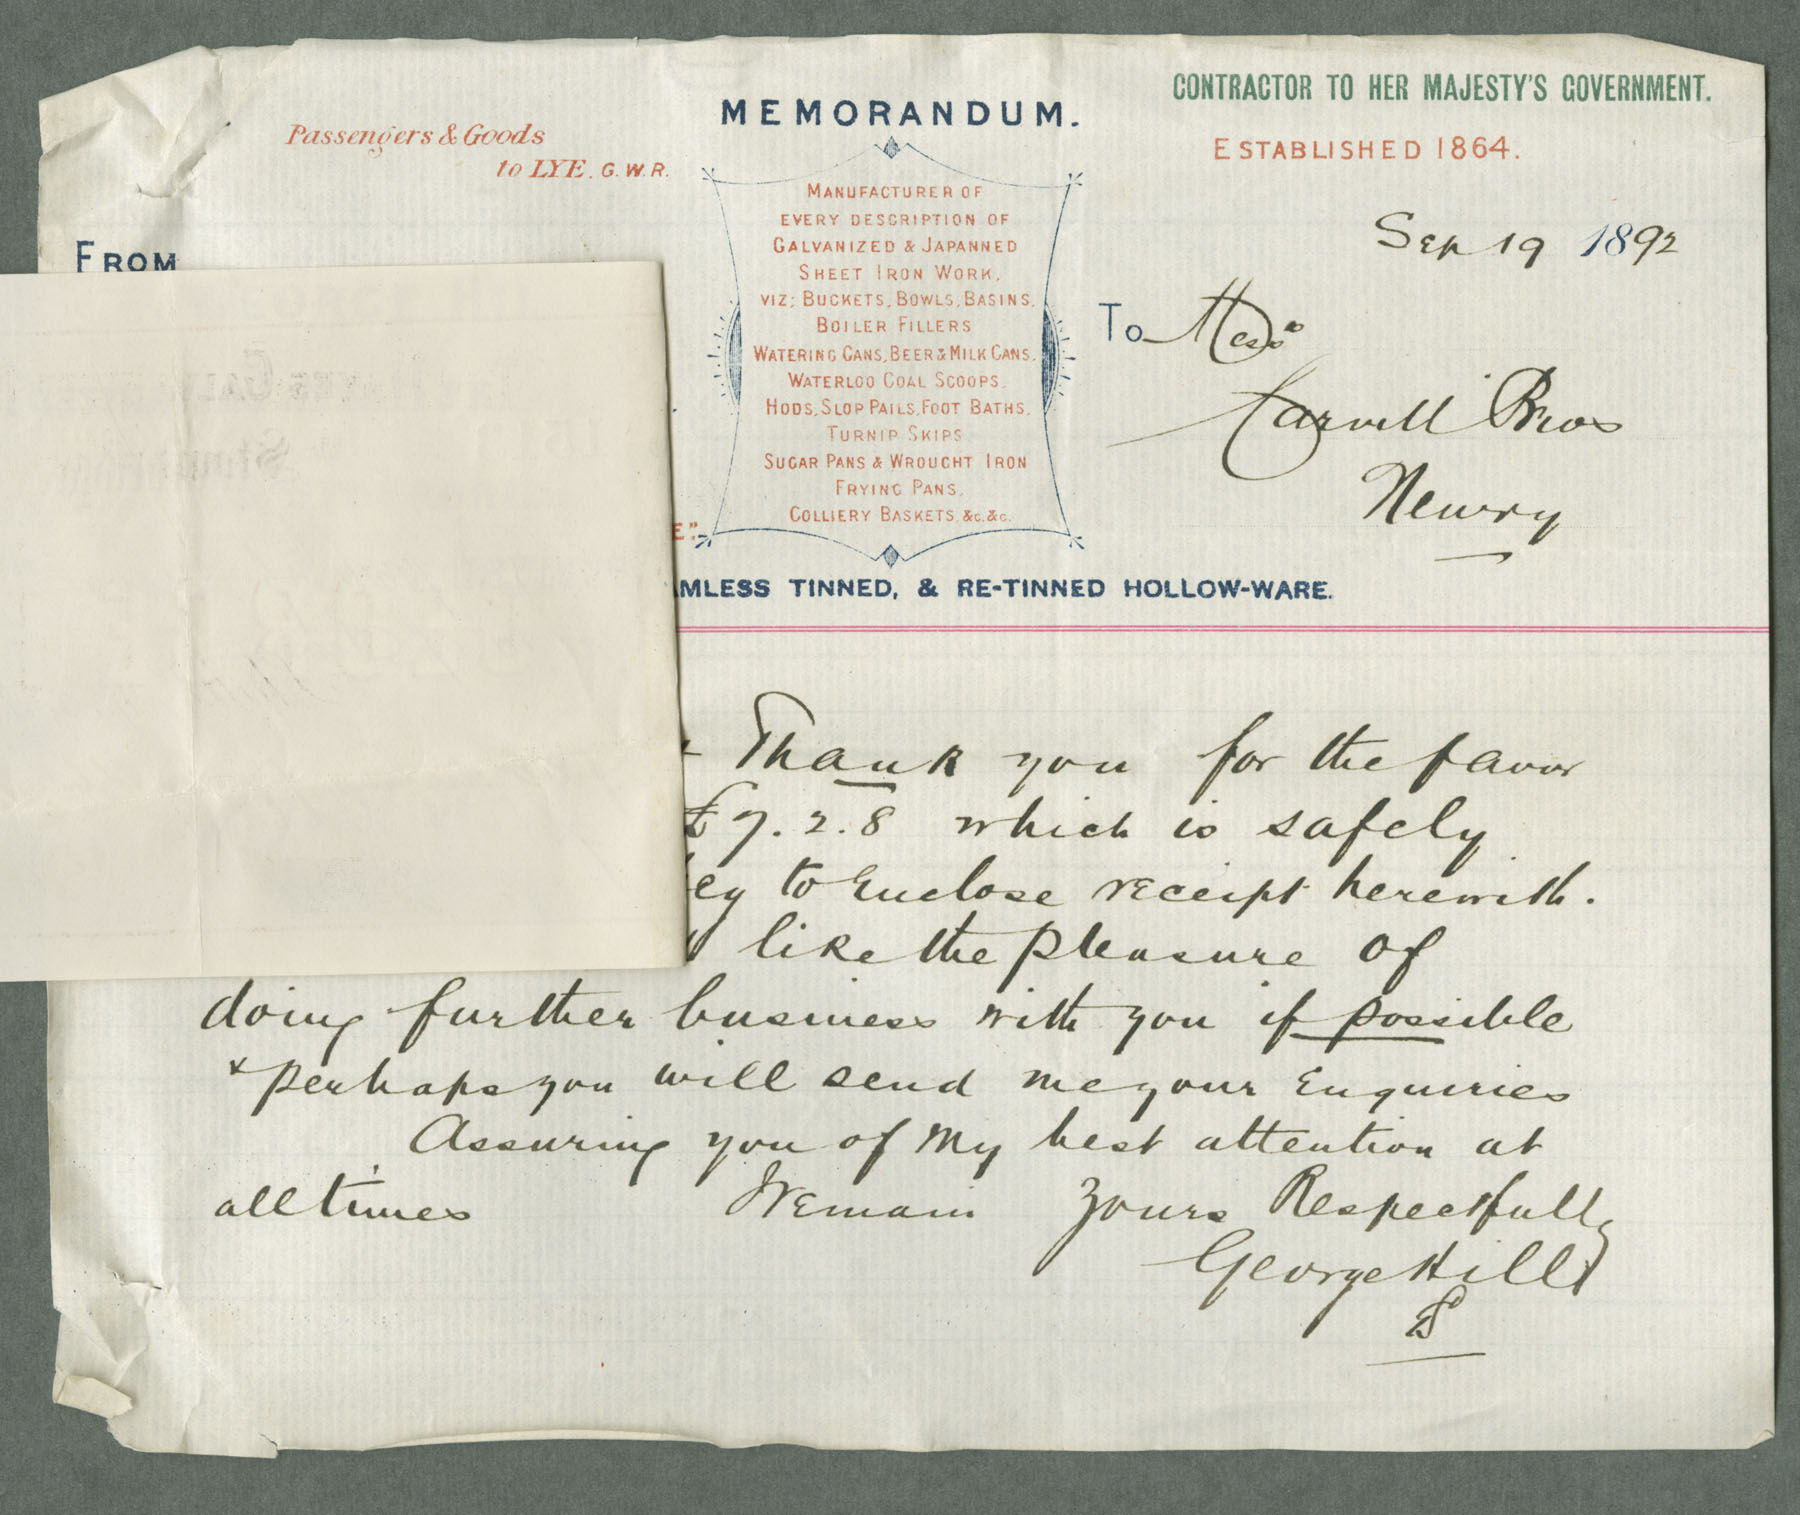 MEMORANDUM.
CONTRACTOR TO HER MAJESTY'S GOVERNMENT.
ESTABLISHED 1864.
Passengers & Goods
to LYE. G.W.R.
FROM
MANUFACTURER OF
EVERY DESCRIPTION OF
GALVANIZED & JAPANNED
SHEET IRON WORK,
VIZ; BUCKETS, BOWLS, BASINS,
BOILER FILLERS
WATERING CANS, BEER & MILK CANS,
WATERLOO COAL SCOOPS.
HODS, SLOP PAILS, FOOT BATHS,
TURNIP SKIPS
SUGAR PANS & WROUGHT IRON
FRYING PANS,
COLLIERY BASKETS &c. &c.
Sep 19 1892
To Messrs
Carvill Bros
Newry
E".
AMLESS TINNED, & RE-TINNED HOLLOW-WARE.
Thank you for the favor
£7.2.8 which is safely
to Enclose receipt herewith.
like the pleasure of
doing further business with you if possible
& perhaps you will send me your Enquiries
Assuring you of my best attention at
all times I remain Yours Respectfully
George Hill